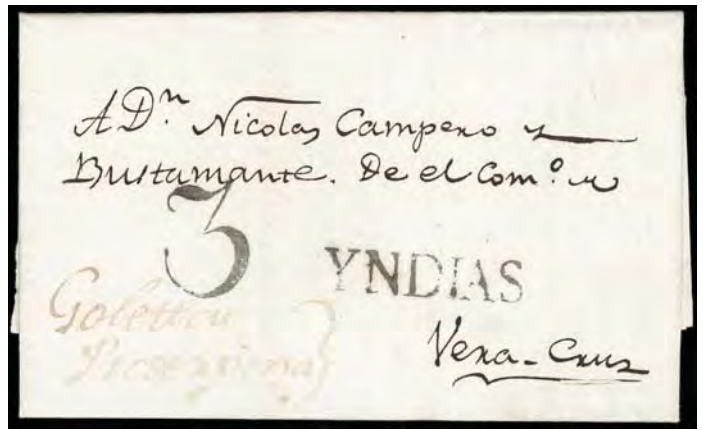 A Dn. Nicolas Campero y
Bustamante. De el Como. u
3
YNDIAS
Goletta
Vera-Cruz